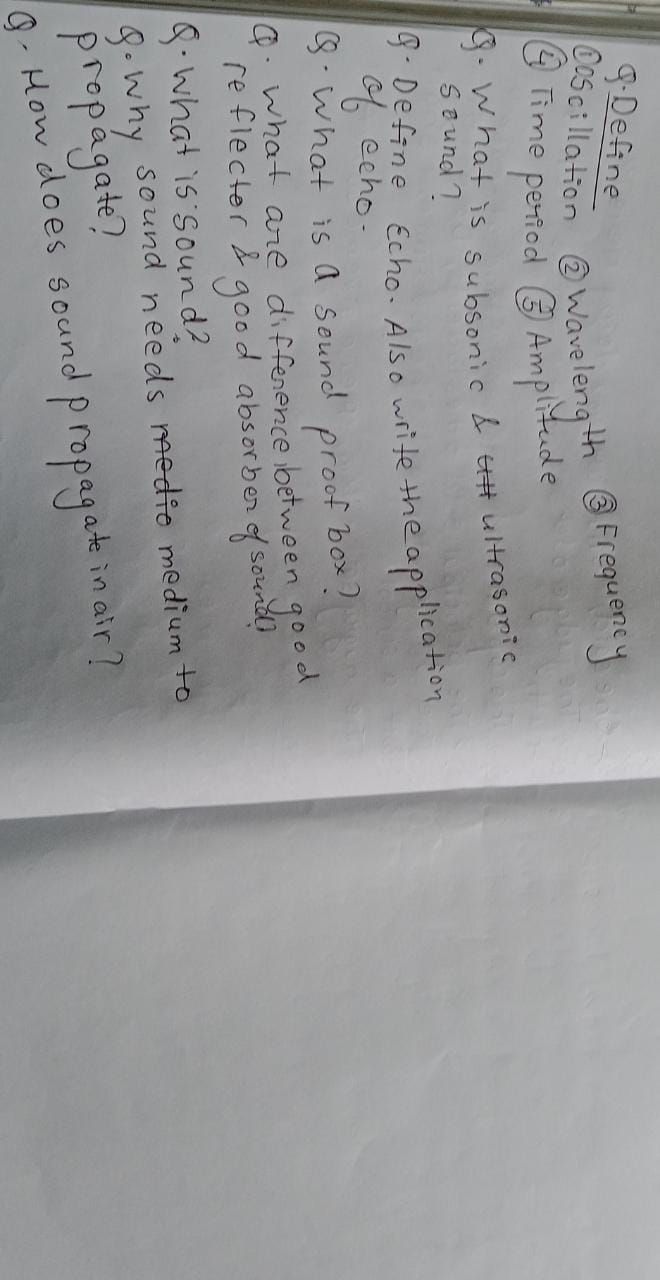 Q. Define
① Oscillation ② Wavelength ③ Frequency
④ Time period ⑤ Amplitude
Q. What is subsonic & ultrasonic
sound?
Q. Define Echo. Also write the application
of echo.
Q. What is a sound proof box?
Q. What are difference between good
reflecter & good absorber of sound?
Q. What is sound?
Q. Why sound needs medium to
propagate?
Q. How does sound propagate in air?